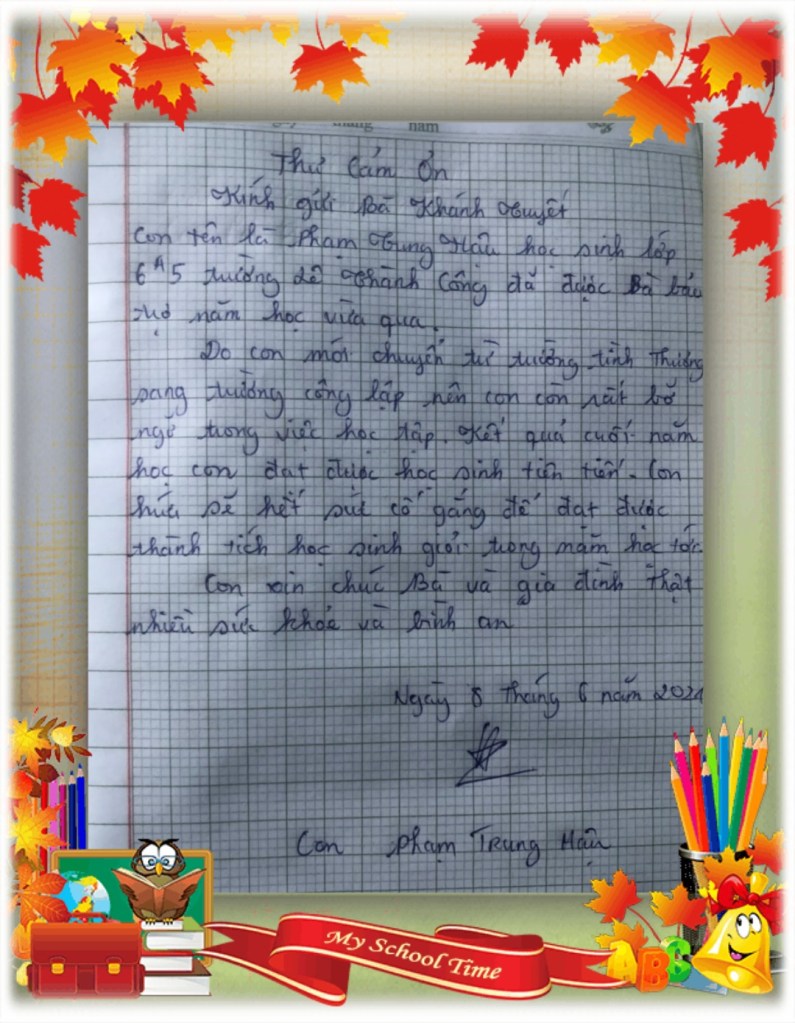 tháng năm
Thư Cảm Ơn
Kính gửi Bà Khánh Tuyết
Con tên là Phạm Trung Hậu học sinh lớp
6A5 trường Lê Thành Công đã được Bà bảo
trợ năm học vừa qua.
Do con mới chuyển từ trường tình Thương
sang trường công lập nên con còn rất bở
ngở trong việc học tập. Kết quả cuối năm
học con đạt được học sinh tiên tiến. Con
hứa sẽ hết sức cố gắng để đạt được
thành tích học sinh giỏi trong năm học tới.
Con xin chúc Bà và gia đình thật
nhiều sức khỏe và bình an
Ngày 8 tháng 6 năm 2021
Con Phạm Trung Hậu
My School Time
ABC